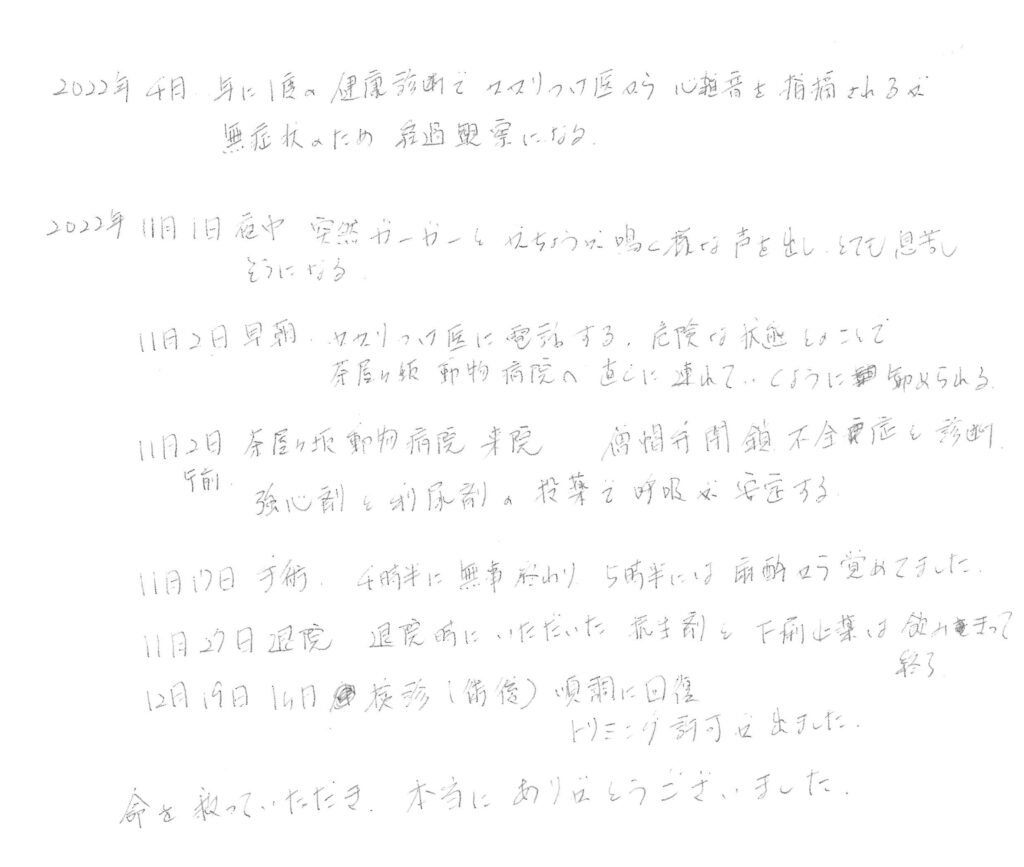 2022年 4月 年に1度の健康診断で カカリつけ医から 心雑音を指摘されるが
無症状のため 経過観察になる.
2022年 11月1日 夜中 突然ガーガーと がちょうが鳴く様な声を出し、とても息苦し
そうになる.
11月2日 早朝. カカリつけ医に電話する. 危険な状態とのことで
茶屋ヶ坂動物病院へ 直ぐに連れていくように 勧められる.
11月2日 茶屋ヶ坂動物病院 来院 僧帽弁閉鎖不全症と診断.
午前.
強心剤と利尿剤の投薬で呼吸が安定する.
11月17日 手術. 4時半に無事終わり 5時半には麻酔から覚めてました.
11月27日 退院 退院時にいただいた 抗生剤と下痢止薬は飲みきって
終了
12月19日 1ヵ月 検診 ( ) 順調に回復
トリミング許可が出ました.
命を救っていただき. 本当にありがとうございました.